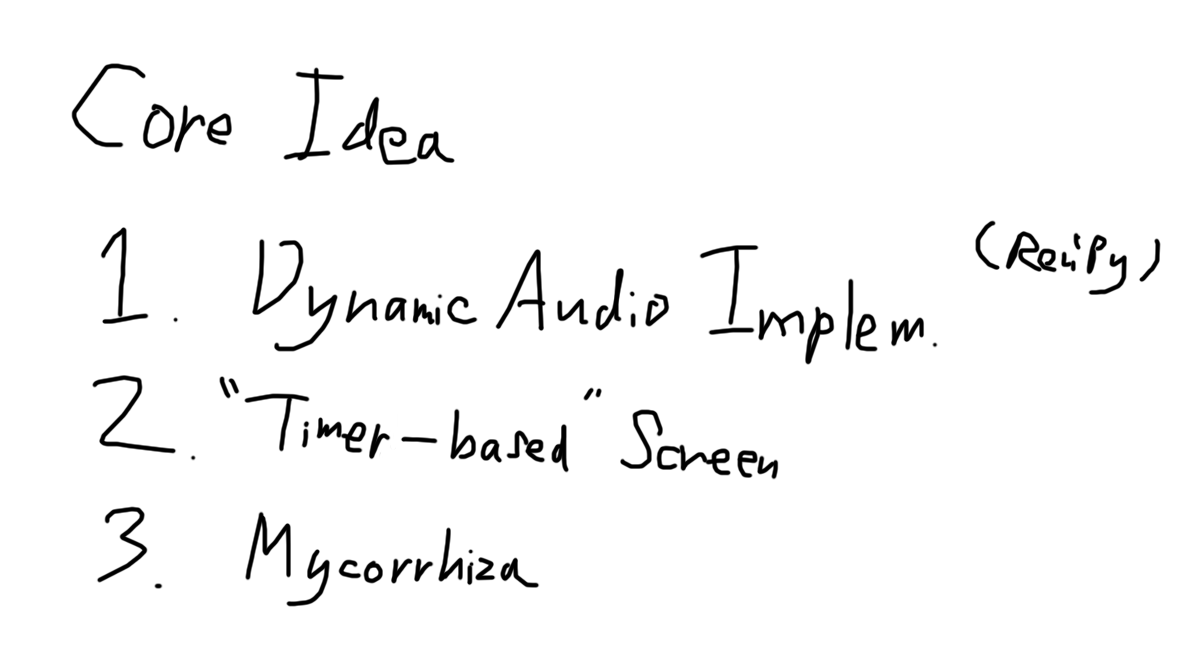 Core Idea
1. Dynamic Audio Implem. (Ren'Py)
2. "Timer-based" Screen
3. Mycorrhiza